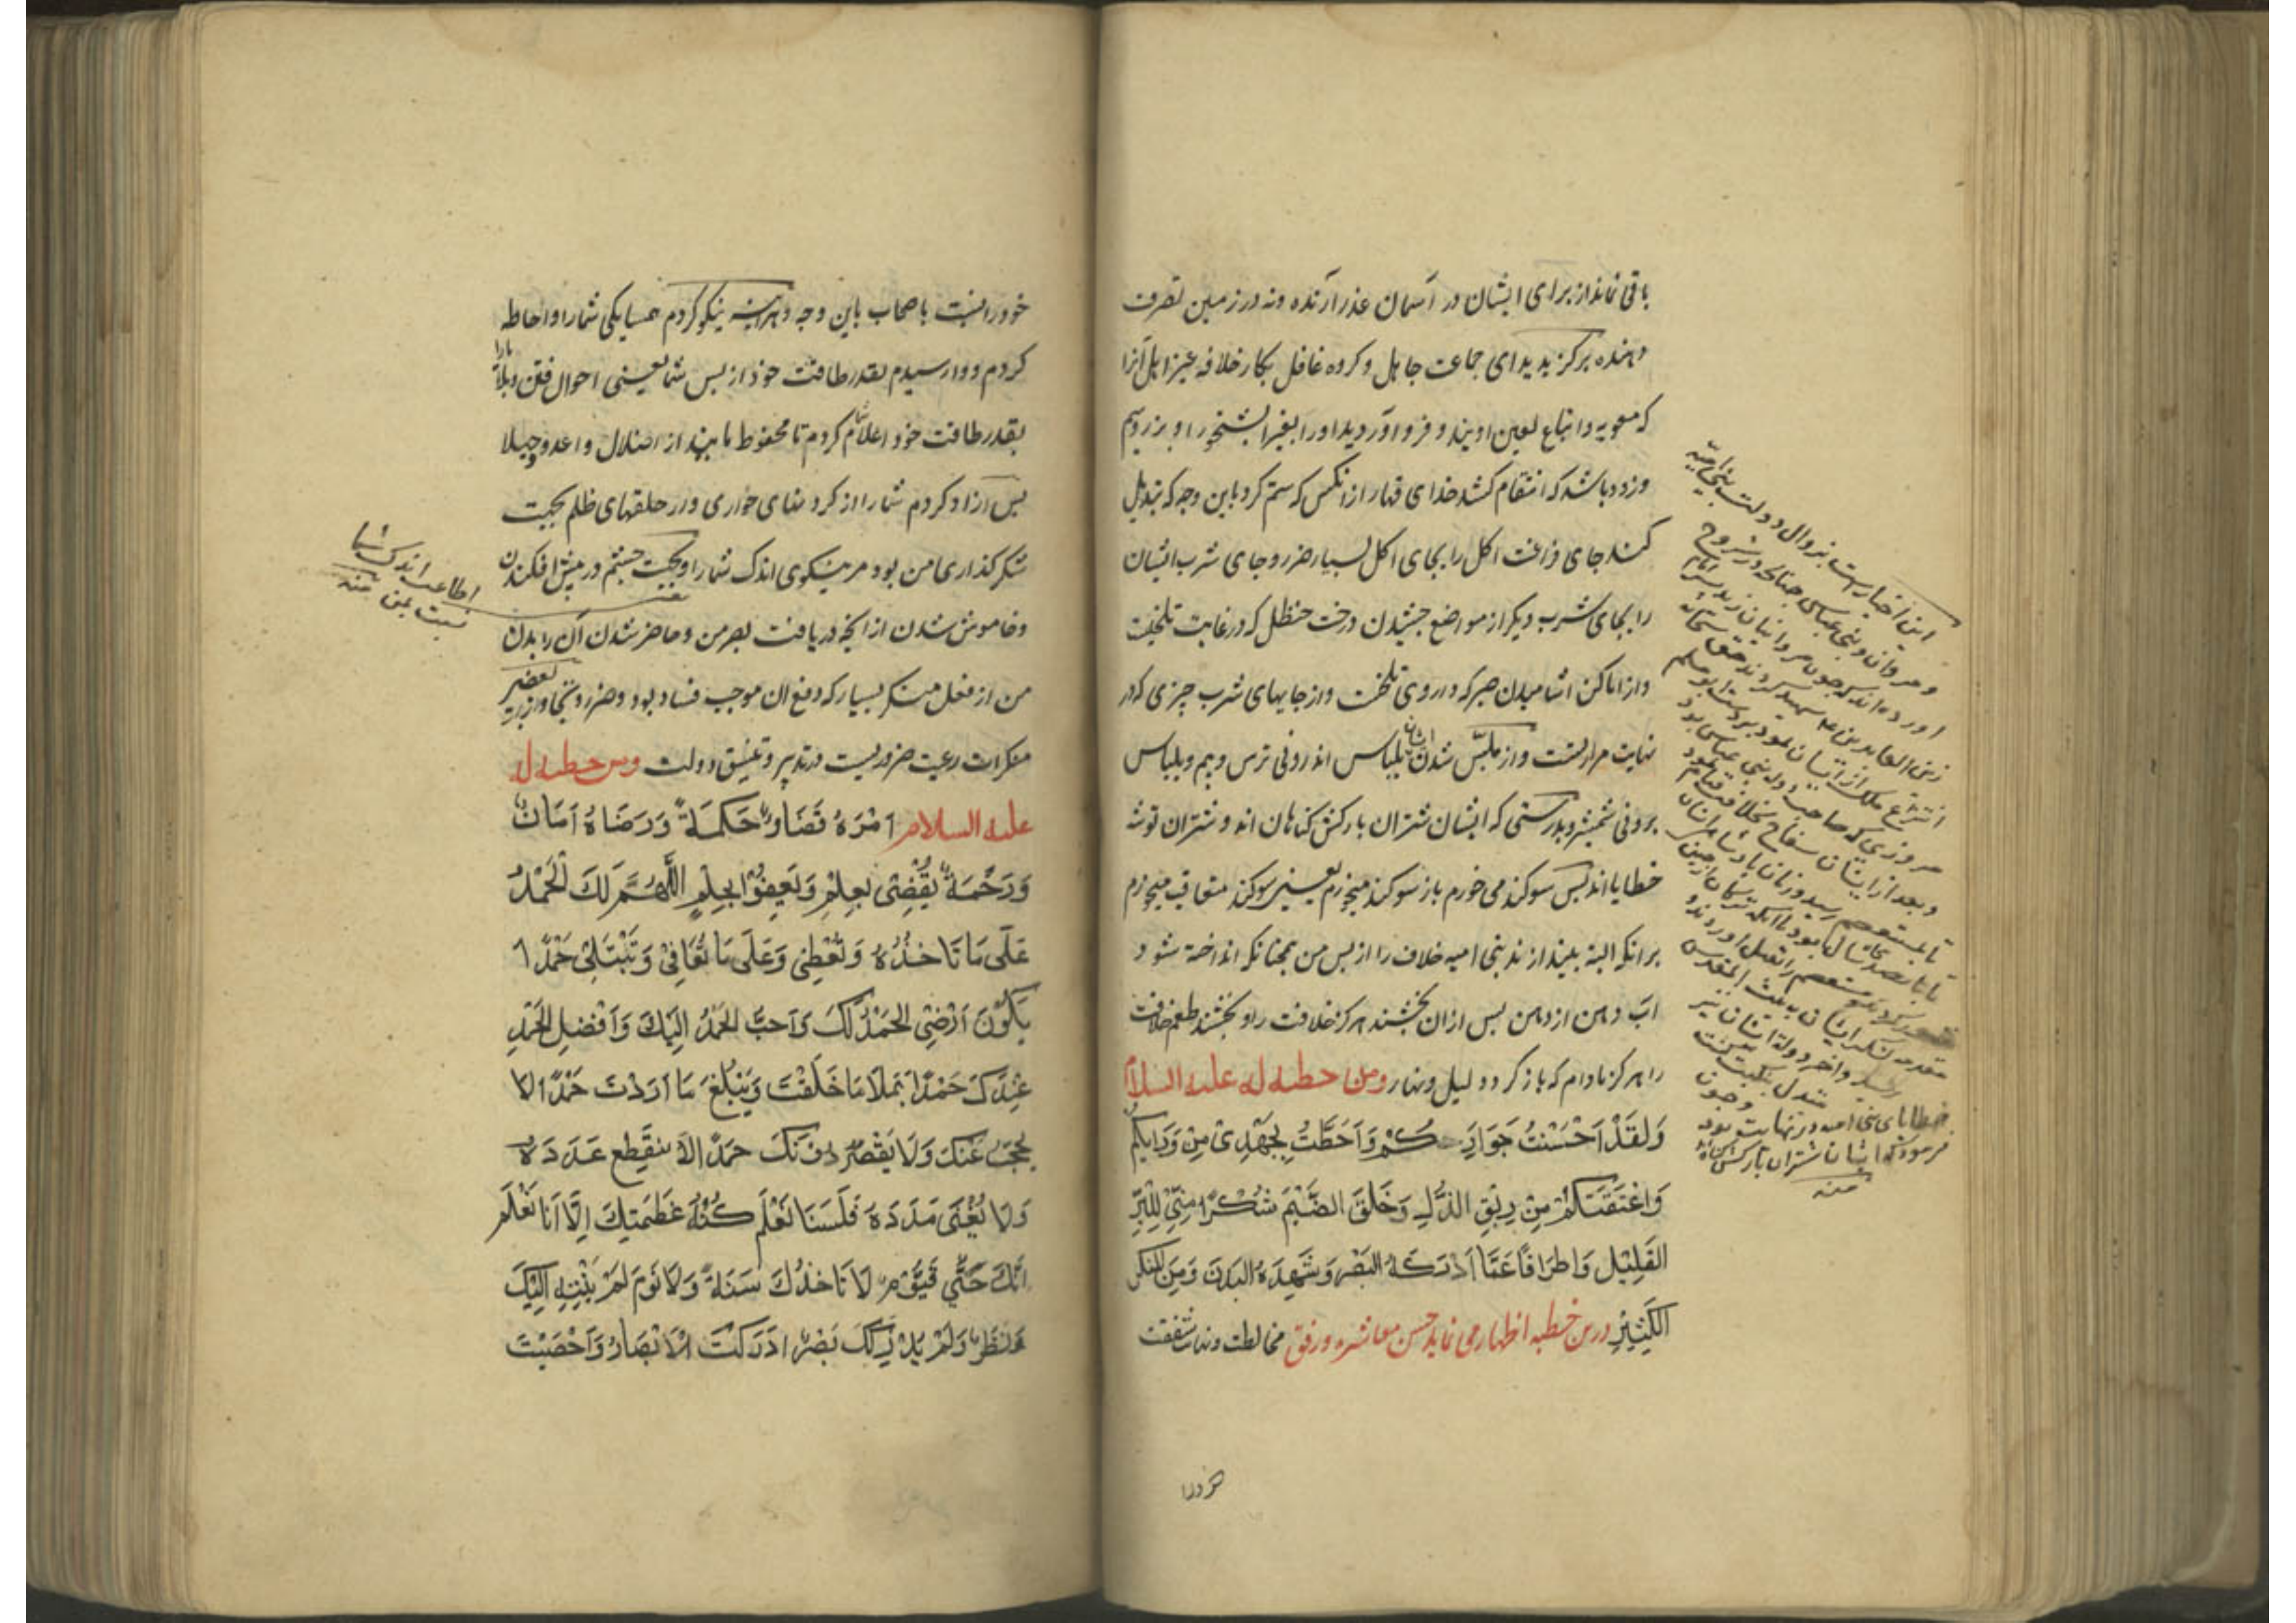 باقی نماند از برای ایشان در آسمان عذر آرنده ونه در زمین نصرت
دهنده برکزیدید ای جماعت جاهل وکروه غافل بکار خلافه غیر اهل آنرا
که معویه واتباع لعین اویند و فرو آوردید اورا بغیر آبشخور او و زود
وزود باشد که انتقام کشد خدای قهار از انکس که ستم کرد باین وجه که تبدیل
کند جای فراغت اکل را بجای اکل بسیار ضرر وجای شرب ایشان
را بجای شرب دیکر از مواضع چشیدن درخت حنظل که در غایت تلخیت
واز اماکن اشامیدن صبر که داروی تلخت واز جایهای شرب چیزی که در
نهایت مرارتست واز ملبس شدن ایشان بلباس اندرونی ترس وبیم وبلباس
برونی شمشیر وبدرستی که ایشان شتران بارکش کناهان اند وشتران توشه
خطایا اند پس سوکند می خورم باز سوکند میخورم یعنی سوکند متعاقب میخورم
برانکه البته بیندازند بنی امیه خلاف را از پس من همچنانکه انداخته شود
اب دهن از دهن پس ازان نچشند هرکز خلافت را ونچشند طعم خلافت
را هرکز مادام که باز کردد لیل ونهار ومن خطبة له علیه السلام
وَلَقَدْ اَحْسَنْتُ جَوَارَكُمْ وَاَحَطْتُ بِجَهْدِی مِنْ وَرَائِكُمْ
وَاعْتَقْتُكُمْ مِنْ رِبَقِ الذُّلِّ وَحَلَقِ الضَّیْمِ شُكْرًا مِنِّی لِلْبِرِّ
القَلِیْلِ وَاطْرَاقًا عَمَّا اَدْرَكَهُ البَصَرُ وَشَهِدَهُ البَدَنُ وَمِنَ المُنْكَرِ
الكَثِیْرِ درین خطبه اظهار می نماید حسن معاشره ورفق مخالطت ونهایت شفقت
خودرا
این اخبارست بزوال دولت بنی امیه
و مروان وبنی عباس چنانکه در شروح
اورده اند که چون مروانیان زید بسر امام
زین العابدین ع شهید کردند حق سبحانه
انتزاع ملک از ایشان نمود بر دست ابو مسلم
مروزی که صاحب دوله بنی عباس بود
وبعد از ایشان سفاح بخلافت قیام نمود
تا بمستعصم رسید وزمان پادشاهی ایشان
خطایای بنی امیه در نهایت بود
فرمود که ایشان شتران بارکش کناه اند
منه
خودرا نسبت باصحاب باین وجه وهرآینه نیکو کردم همسایکی شمارا واحاطه
کردم ووارسیدم بقدر طاقت خود از پس شما یعنی احوال فتن وبلا
بقدر طاقت خود اعلام کردم تا محفوظ مانید از اضلال واعدو حیلا
پس آزاد کردم شمارا از کردنهای خواری واز حلقهای ظلم بجهت
شکر کذاری من بود مر نیکوی اندک شمارا وبجهت چشم در پیش افکندن
وخاموش شدن از انچه دریافت بصر من وحاضر شدن آن را بدن
من از فعل منکر بسیار که دفع ان موجب فساد بود وضرر وتجاوز از بعضی
منکرات رعیت ضروریست در تدبیر وتنسیق دولت ومن خطبة له
علیه السلام اَمْرُهُ قَضَاءٌ وَحِكْمَةٌ وَرَضَاهُ اَمَانٌ
وَرَحْمَةٌ یَقْضِی بِعِلْمٍ وَیَعْفُوْ بِحِلْمٍ اللّٰهُمَّ لَكَ الْحَمْدُ
عَلَی مَا تَاخُذُهُ وَتُعْطِی وَعَلَی مَا تُعَافِیْ وَتَبْتَلِیْ حَمْدًا
یَكُوْنُ اَرْضَی الحَمْدُ لَكَ وَاَحَبَّ الحَمْدُ اِلَیْكَ وَاَفْضَلَ الحَمْدِ
عِنْدَكَ حَمْدًا یَمْلَاُ مَا خَلَقْتَ وَیَبْلُغُ مَا اَرَدْتَ حَمْدًا لا
یُحْجَبُ عَنْكَ وَلَا یُقْصَرُ دُوْنَكَ حَمْدًا لَا یَنْقَطِعُ عَدَدَهُ
وَلَا یَفْنَی مَدَدَهُ فَلَسْنَا نَعْلَمُ كُنْهَ عَظَمَتِكَ اِلَّا اَنَا نَعْلَمُ
اَنَّكَ حَیٌّ قَیُّوْمٌ لَا تَاخُذُكَ سِنَةٌ وَلَا نَوْمٌ لَمْ یَنْتَهِ اِلَیْكَ
نَظَرٌ وَلَمْ یُدْرِكْكَ بَصَرٌ اَدْرَكْتَ الْاَبْصَارَ وَاَحْصَیْتَ
اطاعت اندک شما
نسبت بمن منه